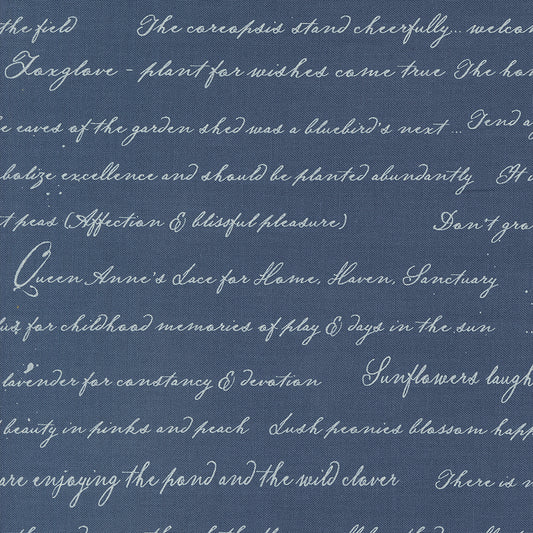 the field The coreopsis stand cheerfully... welcom
Foxglove - plant for wishes come true The hon
e eaves of the garden shed was a bluebird's next ... Tend a
bolize excellence and should be planted abundantly It
t peas (Affection & blissful pleasure) Don't gro
Queen Anne's Lace for Home, Haven, Sanctuary
for childhood memories of play & days in the sun
lavender for constancy & devotion Sunflowers laugh
beauty in pinks and peach Lush peonies blossom happ
are enjoying the pond and the wild clover There is